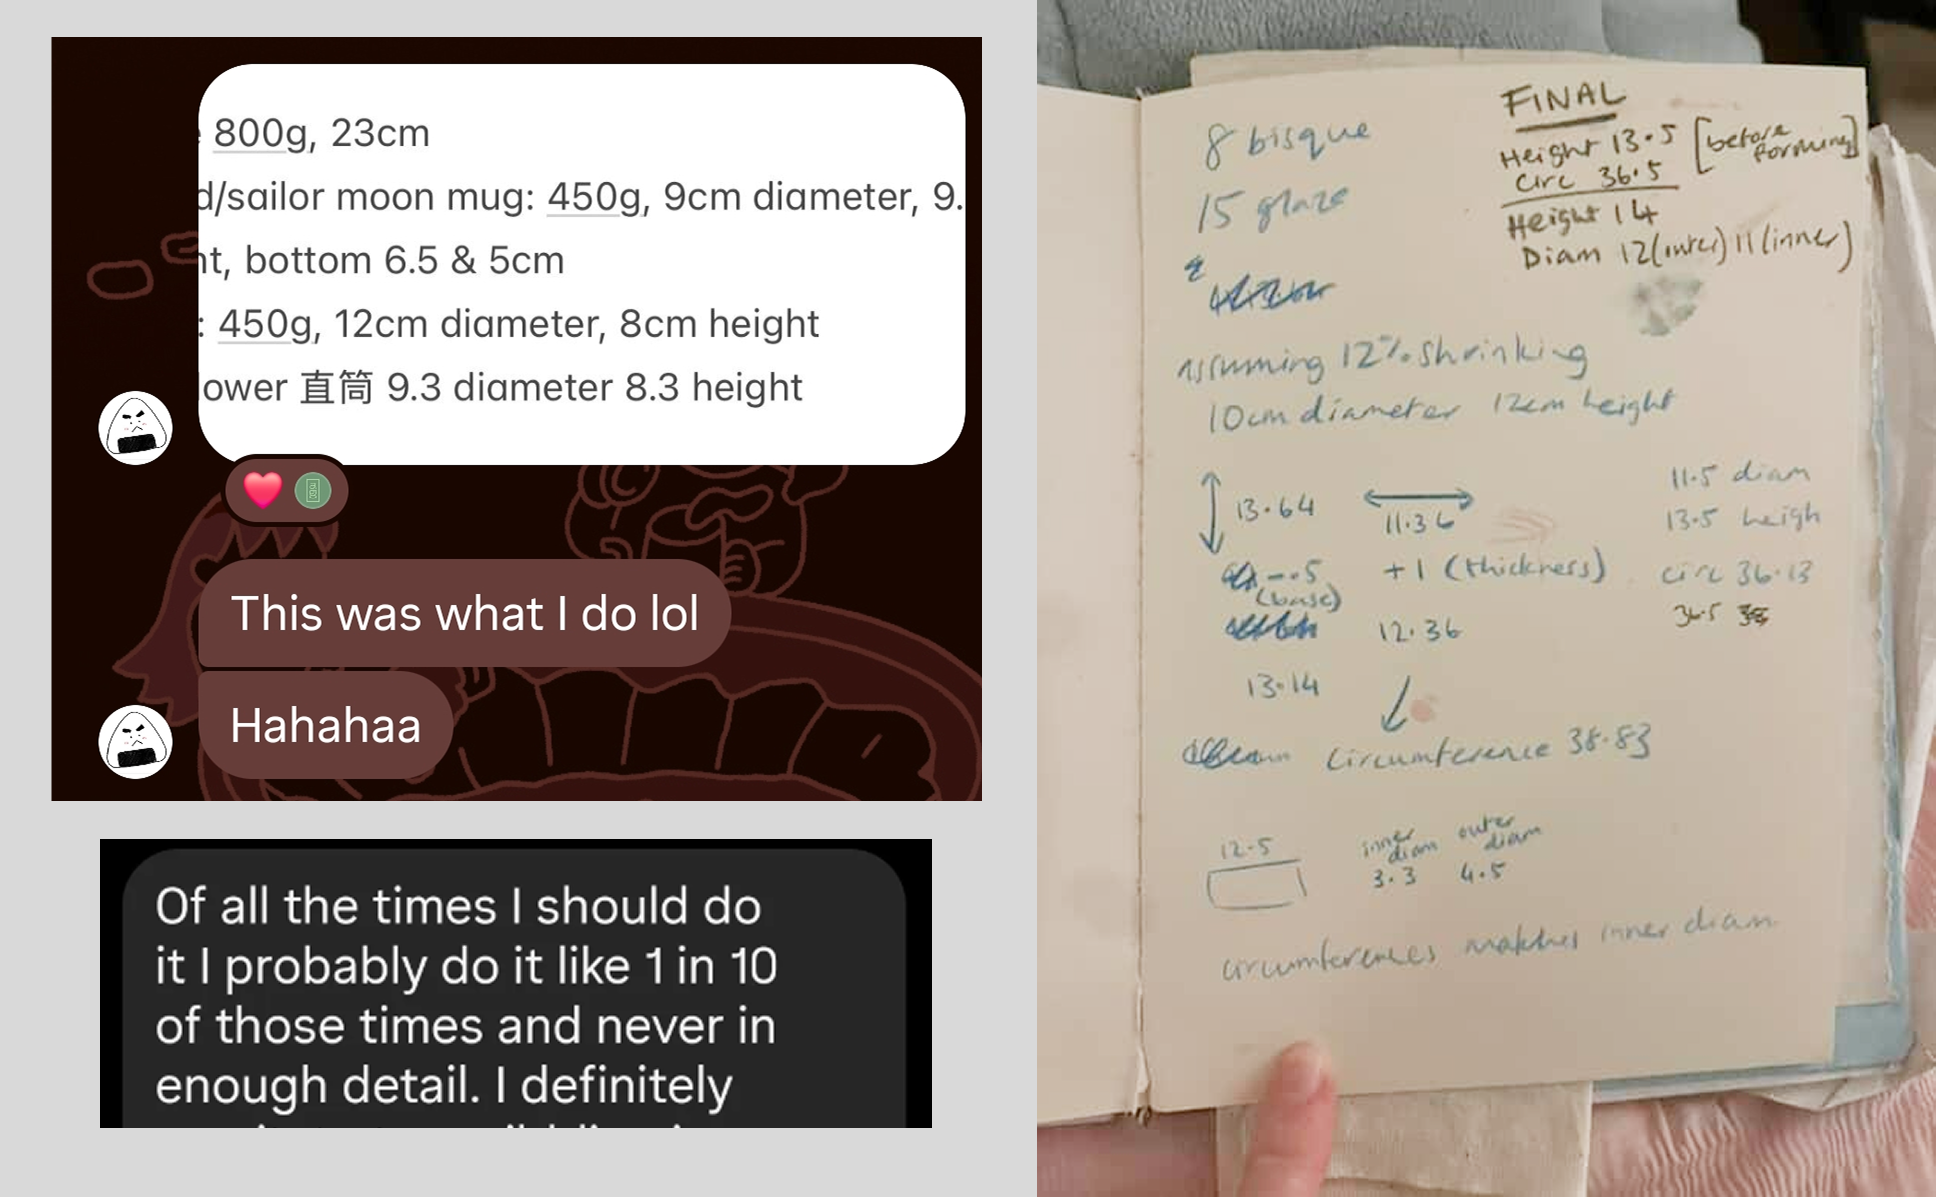 800g, 23cm
d/sailor moon mug: 450g, 9cm diameter, 9.
nt, bottom 6.5 & 5cm
: 450g, 12cm diameter, 8cm height
lower 直筒 9.3 diameter 8.3 height
This was what I do lol
Hahahaa
Of all the times I should do
it I probably do it like 1 in 10
of those times and never in
enough detail. I definitely
FINAL
Height 13.5 [before forming]
Circ 36.5
Height 14
Diam 12(outer) 11(inner)
8 bisque
15 glaze
assuming 12% shrinking
10cm diameter 12cm height
13.64
11.36
11.5 diam
13.5 heigh
-.5
(base)
+1 (thickness)
circ 36.13
36.5
12.36
13.14
circumference 38.83
12.5
inner diam
outer diam
3.3
4.5
circumferences matches inner diam